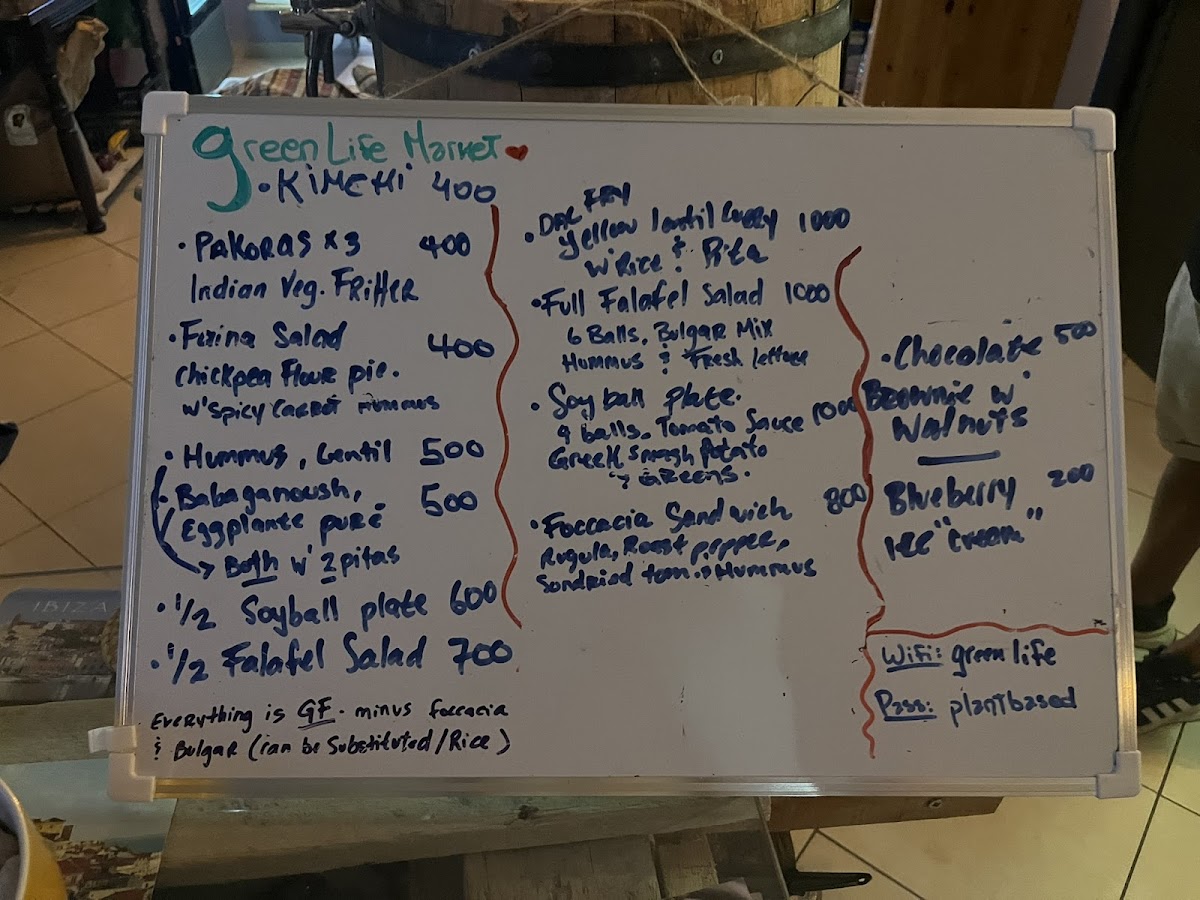 green Life Market
• KiMCHi 400
• PAKORAS x 3 400
Indian Veg. FRitter
• Farina Salad 400
chickpea Flour pie.
w' spicy carrot Hummus
• Hummus, Lentil 500
• Babaganoush, 500
Eggplante puré
Both w' 2 pitas
• 1/2 Soyball plate 600
• 1/2 Falafel Salad 700
Everything is GF. minus foccacia
& Bulgar (can be Substituted/Rice)
• DAL FRY
Yellow lentil Curry 1000
w' Rice & Pita
• Full Falafel Salad 1000
6 Balls, Bulgar Mix
Hummus & Fresh lettuce
• Soy ball plate.
9 balls, Tomato Sauce 1000
Greek smash Potato
& GREENS.
• Foccacia Sandwich 800
Rugula, Roast pepper,
Sondried tom. & Hummus
• Chocolate 500
Brownie w'
Walnuts
Blueberry 200
ice "cream"
WiFi: green life
Pass: plantbased
IBIZA